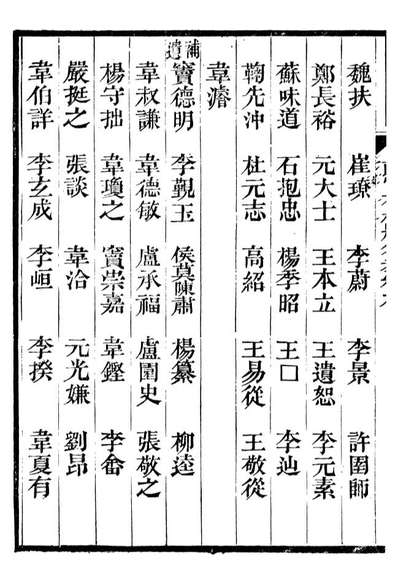 魏扶 崔璙 李蔚 李景 許圉師
鄭長裕 元大士 王本立 王遺恕 李元素
蘇味道 石抱忠 楊季昭 王口 李迅
鞠先沖 杜元志 高紹 王易從 王敬從
韋濬
補遺
竇德明 李覲玉 侯莫陳肅 楊纂 柳逵
韋叔謙 韋德敏 盧承福 盧圕史 張敬之
楊守拙 韋瓊之 竇崇嘉 韋鏗 李畬
嚴挺之 張談 韋洽 元光嫌 劉昂
韋伯詳 李玄成 李峘 李揆 韋夏有